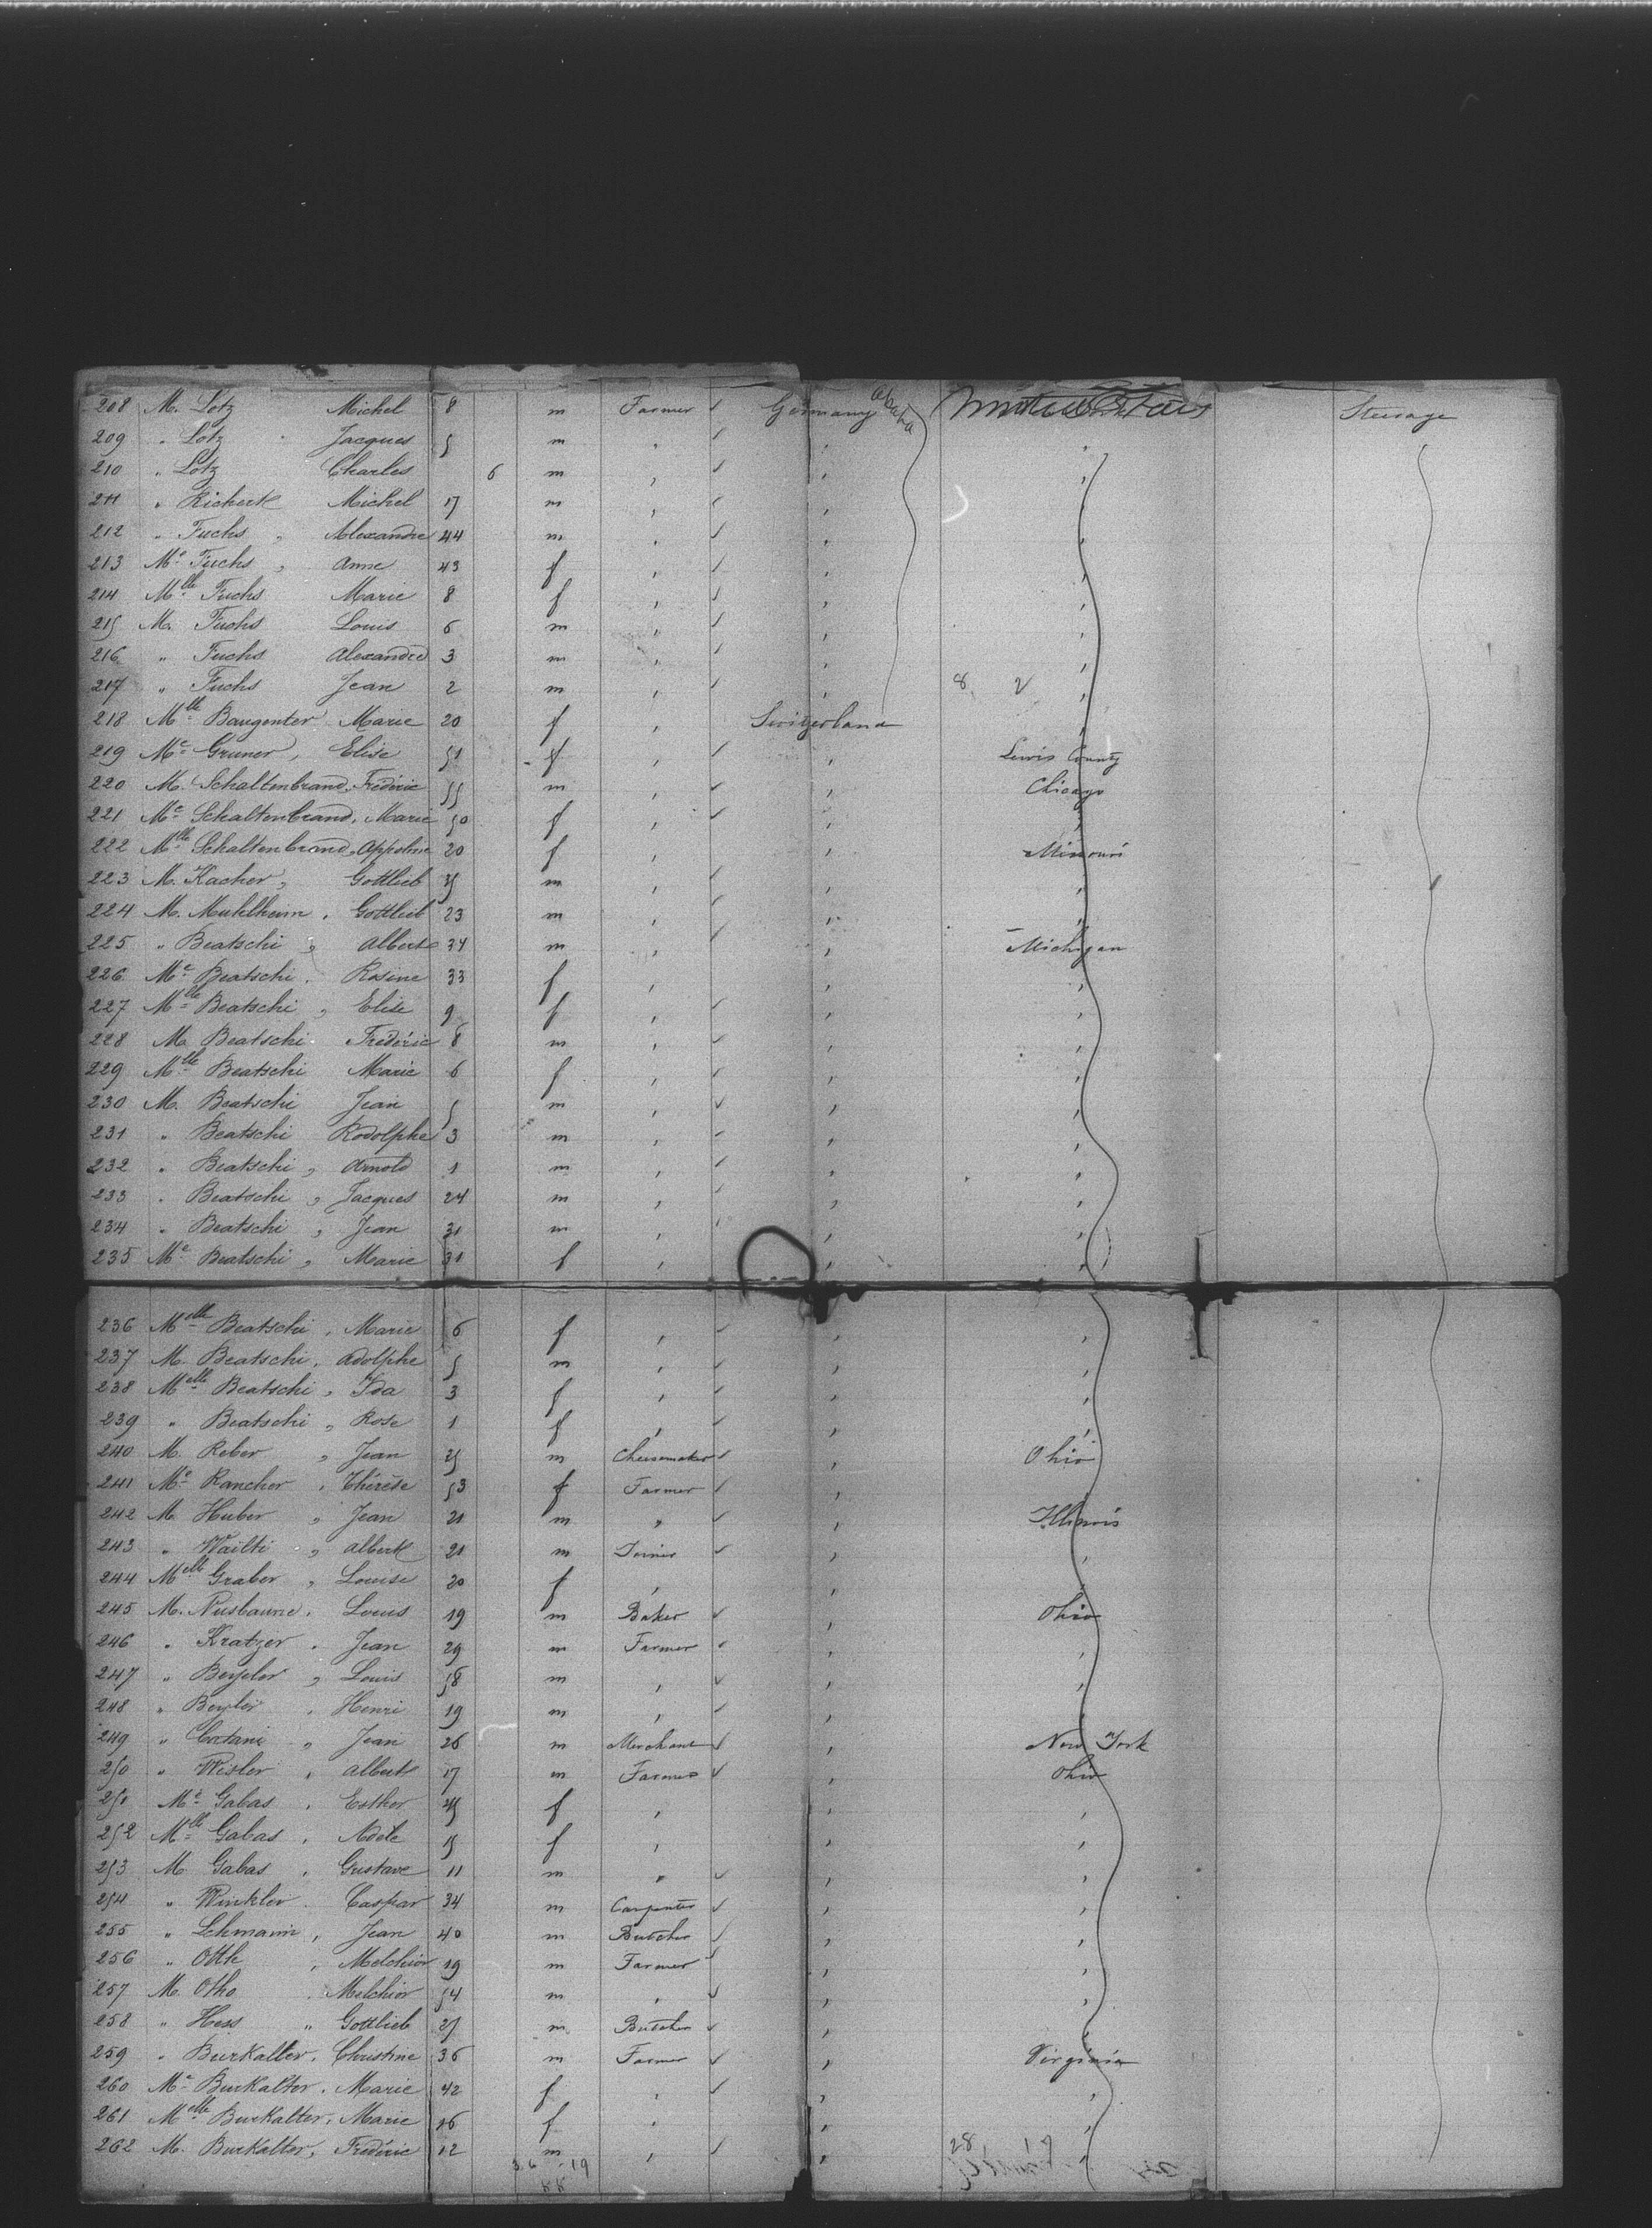 208 M. Lotz Michel 8 m Farmer Germany United States Steerage
209 " Lotz Jacques 5 m "
210 " Lotz Charles 6 m "
211 " Richert Michel 17 m "
212 " Fuchs " Alexandre 44 m "
213 Me Fuchs " Anne 43 f "
214 Mlle Fuchs Marie 8 f "
215 M. Fuchs Louis 6 m "
216 " Fuchs Alexandre 3 m "
217 " Fuchs Jean 2 m " 8 2
218 Mlle Baugenter Marie 20 f " Switzerland "
219 Me Gruner, Elise 51 f " " Lewis County
220 M. Schaltenbrand, Frédéric 55 m " " Chicago
221 Me Schaltenbrand, Marie 50 f " " "
222 Mlle Schaltenbrand, Appoline 20 f " " Missouri
223 M. Kacher, Gottlieb 35 m " " "
224 M. Muhlheim, Gottlieb 23 m " " "
225 " Beatschi, Albert 34 m " " Michigan
226 Me Beatschi, Rosine 33 f " " "
227 Mlle Beatschi, Elise 9 f " " "
228 M. Beatschi Frédéric 8 m " " "
229 Mlle Beatschi Marie 6 f " " "
230 M. Beatschi Jean 5 m " " "
231 " Beatschi Rodolphe 3 m " " "
232 " Beatschi, Arnold 1 m " " "
233 " Beatschi, Jacques 24 m " " "
234 " Beatschi, Jean 31 m " " "
235 Me Beatschi, Marie 31 f " " "
236 Melle Beatschi, Marie 6 f " " "
237 M. Beatschi, Adolphe 5 m " " "
238 Melle Beatschi, Ida 3 f " " "
239 " Beatschi, Rose 1 f " " "
240 M. Reber, Jean 25 m Cheesemaker " Ohio
241 Me Rancher, Thérèse 53 f Farmer "
242 M. Huber, Jean 21 m " " Illinois
243 " Wailti, Albert 21 m " "
244 Melle Graber, Louise 20 f " "
245 M. Nusbaume, Louis 19 m Baker " Ohio
246 " Kratzer, Jean 29 m Farmer " "
247 " Beyeler, Louis 58 m " " "
248 " Beyler, Henri 19 m " " "
249 " Catani, Jean 26 m Merchant " New York
250 " Wisler, Albert 17 m Farmer " Ohio
251 Me Gabas, Esther 45 f " " "
252 Mlle Gabas, Adèle 15 f " " "
253 M. Gabas, Gustave 11 m " " "
254 " Winkler, Caspar 34 m Carpenter " "
255 " Lehmann, Jean 40 m Butcher " "
256 " Otth, Melchior 19 m Farmer " "
257 M. Otho Melchior 54 m " " "
258 " Hess " Gottlieb 25 m Butcher " "
259 " Burkalter, Christine 36 m Farmer " Virginia
260 Me Burkalter, Marie 42 f " " "
261 Melle Burkalter, Marie 16 f " " "
262 M. Burkalter, Frédéric 12 m " " "
36 19
28 19